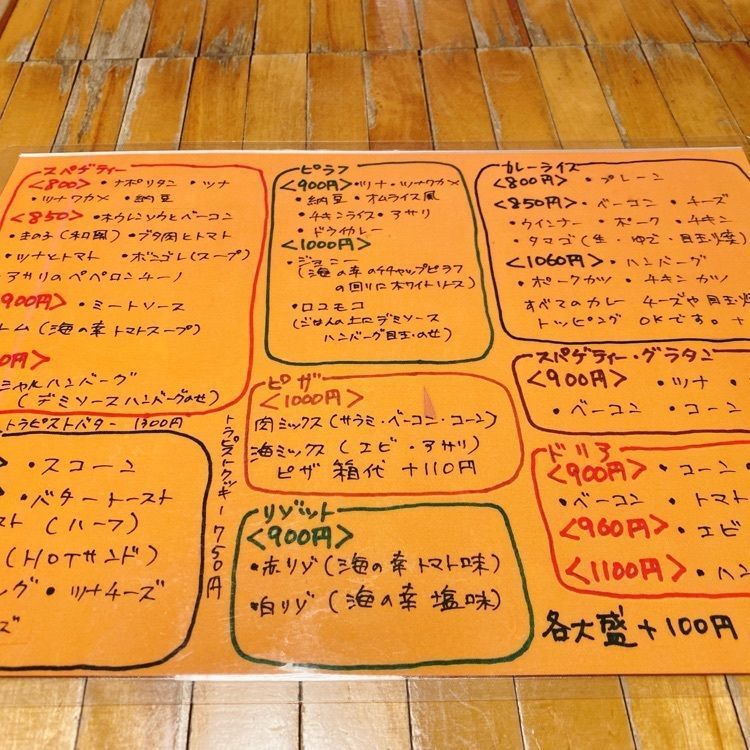 スパゲティー
<800> ・ナポリタン ・ツナ
・ツナワカメ ・納豆
<850> ・ホウレンソウとベーコン
・きのこ(和風) ・ブタ肉とトマト
・ツナとトマト ・ボンゴレ(スープ)
アサリのペペロンチーノ
900円> ・ミートソース
トム(海の幸トマトスープ)
0円>
シャルハンバーグ
(デミソースハンバーグのせ)
トラピストバター 1300円
・スコーン
・バタートースト
スト(ハーフ)
(HOTサンド)
ング・ツナチーズ
ズ
トラピストクッキー750円
ピラフ
<900円> ・ツナ・ツナワカメ
・納豆 ・オムライス風
・チキンライス・アサリ
・ドライカレー
<1000円>
・ジョニー
(海の幸のケチャップピラフ
の回りにホワイトソース)
・ロコモコ
(ごはんの上にデミソース
ハンバーグ目玉のせ)
ピザ
<1000円>
肉ミックス(サラミ・ベーコン・コーン)
海ミックス(エビ・アサリ)
ピザ 箱代 +110円
リゾット
<900円>
・赤リゾ(海の幸トマト味)
・白リゾ(海の幸 塩味)
カレーライス
<800円> ・プレーン
<850円> ・ベーコン ・チーズ
・ウインナー ・ポーク ・チキン
・タマゴ(生・ゆで・目玉焼)
<1060円> ・ハンバーグ
・ポークカツ ・チキンカツ
すべてのカレー チーズや目玉焼
トッピング OKです。+
スパゲティー・グラタン
<900円> ・ツナ
・ベーコン ・コーン
ドリア
<900円> ・コーン
・ベーコン ・トマト
<960円> ・エビ
<1100円> ・ハン
各大盛+100円